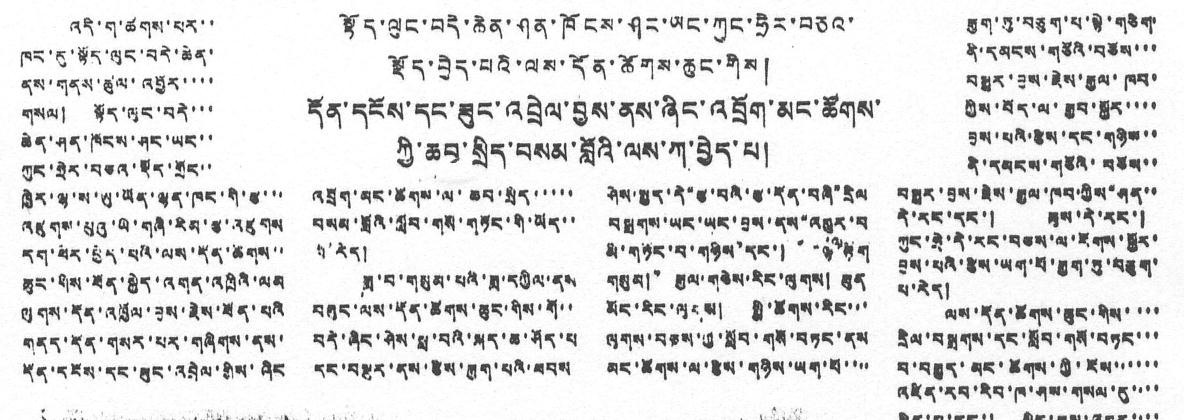 སྟོད་ལུང་བདེ་ཆེན་ཤན་ཁོངས་ཤང་ཡང་ཀུང་ཧྲེར་བཅའ་
སྡོད་བྱེད་པའི་ལས་དོན་ཚོགས་ཆུང་གིས།
དོན་དངོས་དང་ཟུང་འབྲེལ་བྱས་ནས་ཞིང་འབྲོག་མང་ཚོགས་
ཀྱི་ཆབ་སྲིད་བསམ་བློའི་ལས་ཀ་བྱེད་པ།
འདི་ག་ཚགས་པར་་
ཁང་དུ་སྟོད་ལུང་བདེ་ཆེན་
ནས་གནས་ཚུལ་འབྱོར་་་་
གསལ། སྟོད་ལུང་བདེ་་་
ཆེན་ཤན་ཁོངས་ཤང་ཡང་་
ཀུང་ཧྲེར་བཅའ་སྡོད་གྲོང་་
ཁྱེར་ལྷ་ས་ཨུ་ཡོན་ལྷན་ཁང་གི་རྩ་་་
འཛུགས་པུའུ་ཡི་གཞི་རིམ་རྩ་འཛུགས
དག་ཐེར་བྱེད་པའི་ལས་དོན་ཚོགས་་
ཆུང་གིས་ཐོན་སྐྱེད་འགན་འཁྲིའི་ལམ
ལུགས་དོན་འཁྱོལ་བྱས་རྗེས་ཐོན་པའི
གནད་དོན་གསར་པར་གཞིགས་ནས་
དོན་དངོས་དང་ཟུང་འབྲེལ་གྱིས་ཞིང
འབྲོག་མང་ཚོགས་ལ་ཆབ་སྲིད་་་་་
བསམ་བློའི་སློབ་གསོ་གཏོང་གི་ཡོད་་
རེད།
ཟླ་བ་གསུམ་པའི་ཟླ་དཀྱིལ་ནས
བཟུང་ལས་དོན་ཚོགས་ཆུང་གིས་གོ་་
བདེ་ཞིང་ཤེས་སླ་བའི་སྐད་ཆ་ཤོད་པ
དང་བསྟུན་ནས་རྩིས་རྒྱག་པའི་ཐབས
ཤེས་སྤྱད་དེ“རྩ་བའི་རྩ་དོན་བཞི”དྲིལ
བསྒྲགས་ཡང་ཡང་བྱས་ནས“འགྱུར་བ
མི་གཏོང་བ་གཉིས”དང་།
གསུམ།” རྒྱལ་གཅེས་རིང་ལུགས། ཐུན
མོང་རིང་ལུགས། སྤྱི་ཚོགས་རིང་་་
ལུགས་བཅས་ཀྱི་སློབ་གསོ་བཏང་ནས
མང་ཚོགས་ལ་རྩིས་གཉིས་ཡག་པོ་་་
རྒྱག་ཏུ་བཅུག་པ་སྟེ་གཅིག་
ནི་དམངས་གཙོའི་བཅོས་་་
བསྒྱུར་བྱས་རྗེས་རྒྱལ་ཁབ་
ཀྱིས་བོད་ལ་རྒྱབ་སྐྱོར་་་་
བྱས་པའི་རྩིས་དང་གཉིས་་
ནི་དམངས་གཙོའི་བཅོས་་
བསྒྱུར་བྱས་རྗེས་རྒྱལ་ཁབ་ཀྱིས“ཤན་་
དེ་རང་དང་། ཧྲུས་དེ་རང་།
ཀུང་ཧྲེ་དེ་རང་བཅས་ལ་རོགས་སྐྱོར་
བྱས་པའི་རྩིས་ཡག་པོ་རྒྱག་ཏུ་བཅུག་
པ་རེད།
ལས་དོན་ཚོགས་ཆུང་གིས་་་་
དྲིལ་བསྒྲགས་དང་སློབ་གསོ་བཏང་་་
བ་བརྒྱུད་མང་ཚོགས་ཀྱི་ངོས་་་་་་
འཛིན་རབ་རིབ་ཁ་ཤས་གསལ་དུ་་་་